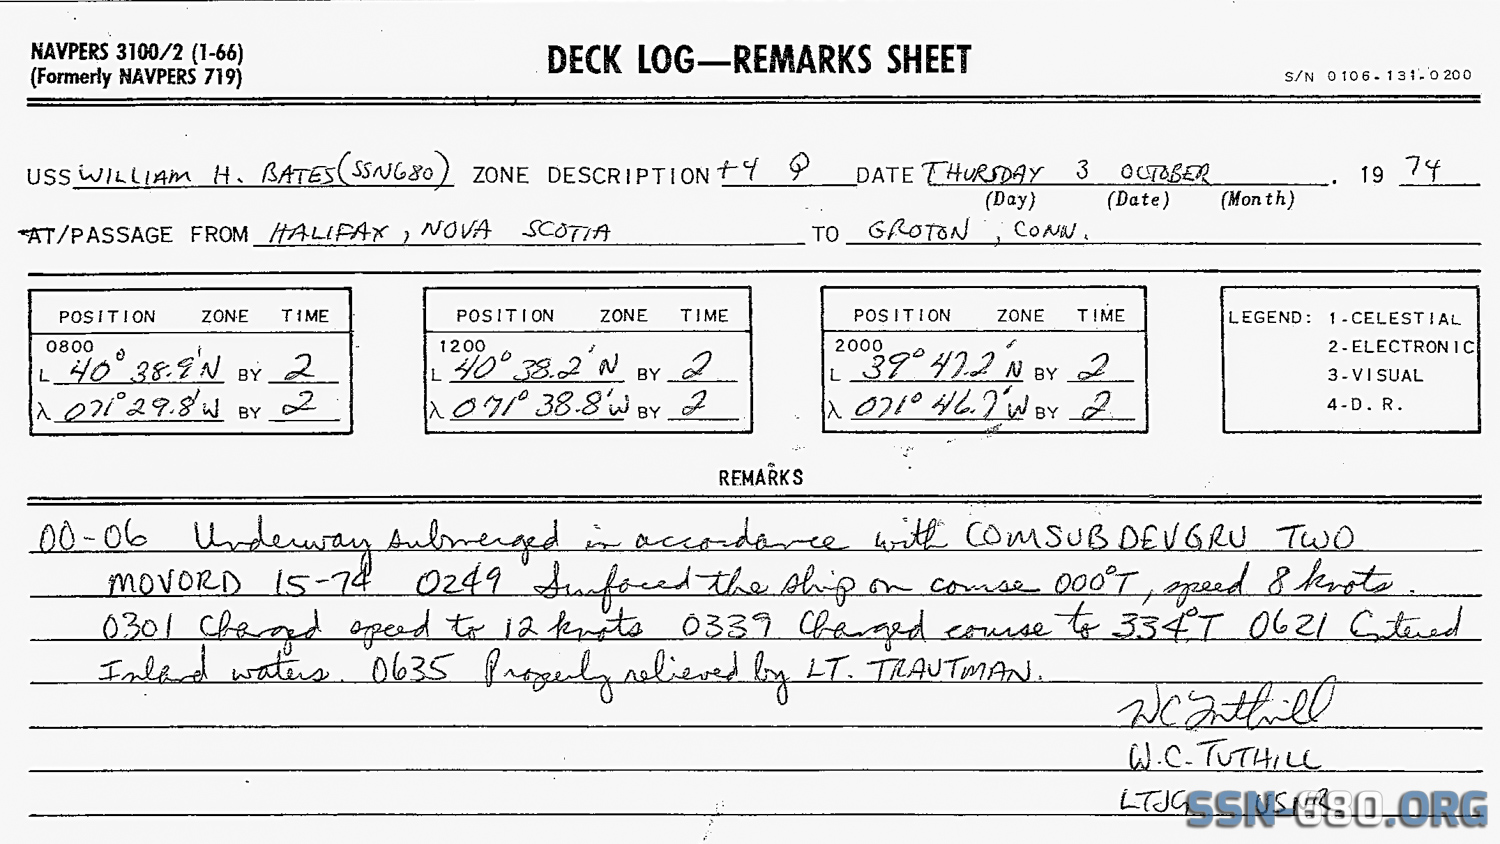 NAVPERS 3100/2 (1-66)
(Formerly NAVPERS 719)
DECK LOG—REMARKS SHEET
S/N 0106-131-0200
USS WILLIAM H. BATES (SSN680) ZONE DESCRIPTION +4 Q DATE THURSDAY 3 OCTOBER . 19 74
(Day) (Date) (Month)
AT/PASSAGE FROM HALIFAX, NOVA SCOTIA TO GROTON, CONN.
POSITION ZONE TIME
0800
L 40° 38.9'N BY 2
λ 071° 29.8'W BY 2
POSITION ZONE TIME
1200
L 40° 38.2'N BY 2
λ 071° 38.8'W BY 2
POSITION ZONE TIME
2000
L 39° 47.2'N BY 2
λ 071° 46.7'W BY 2
LEGEND: 1-CELESTIAL
2-ELECTRONIC
3-VISUAL
4-D. R.
REMARKS
00-06 Underway submerged in accordance with COMSUBDEVGRU TWO
MOVORD 15-74 0249 Surfaced the ship on course 000°T, speed 8 knots.
0301 Changed speed to 12 knots 0339 Changed course to 334°T 0621 Entered
Inland waters. 0635 Properly relieved by LT. TRAUTMAN.
WC Tuthill
W.C. TUTHILL
LTJG USNR
SSN-680.ORG